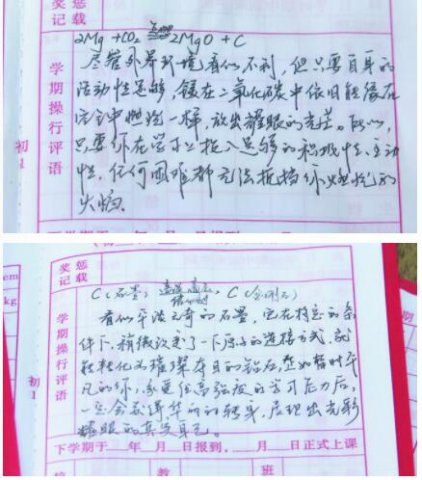 奖惩
记载
2Mg + CO₂ 点燃 2MgO + C
尽管外界环境看似不利，但只要自身的
活动性足够，镁在二氧化碳中依旧能像在
空气中燃烧一样，放出耀眼的光芒。所以，
只要你在学习上投入足够的积极性、主动
性，任何困难都无法抵挡你燃烧的
火焰。
学期操行评语
初1
奖惩
记载
C（石墨） 高温 高压 催化剂 C（金刚石）
看似平淡无奇的石墨，它在特定的条
件下，稍微改变了一下原子的连接方式，就
能转化为璀璨夺目的钻石，正如暂时平
凡的你，承受住高强度的学习压力后，
一定会获得华丽的转身，展现出光彩
耀眼的真实自己。
学期操行评语
初1
下学期于 年 月 日报到， 月 日正式上课
教
班
cm
kg